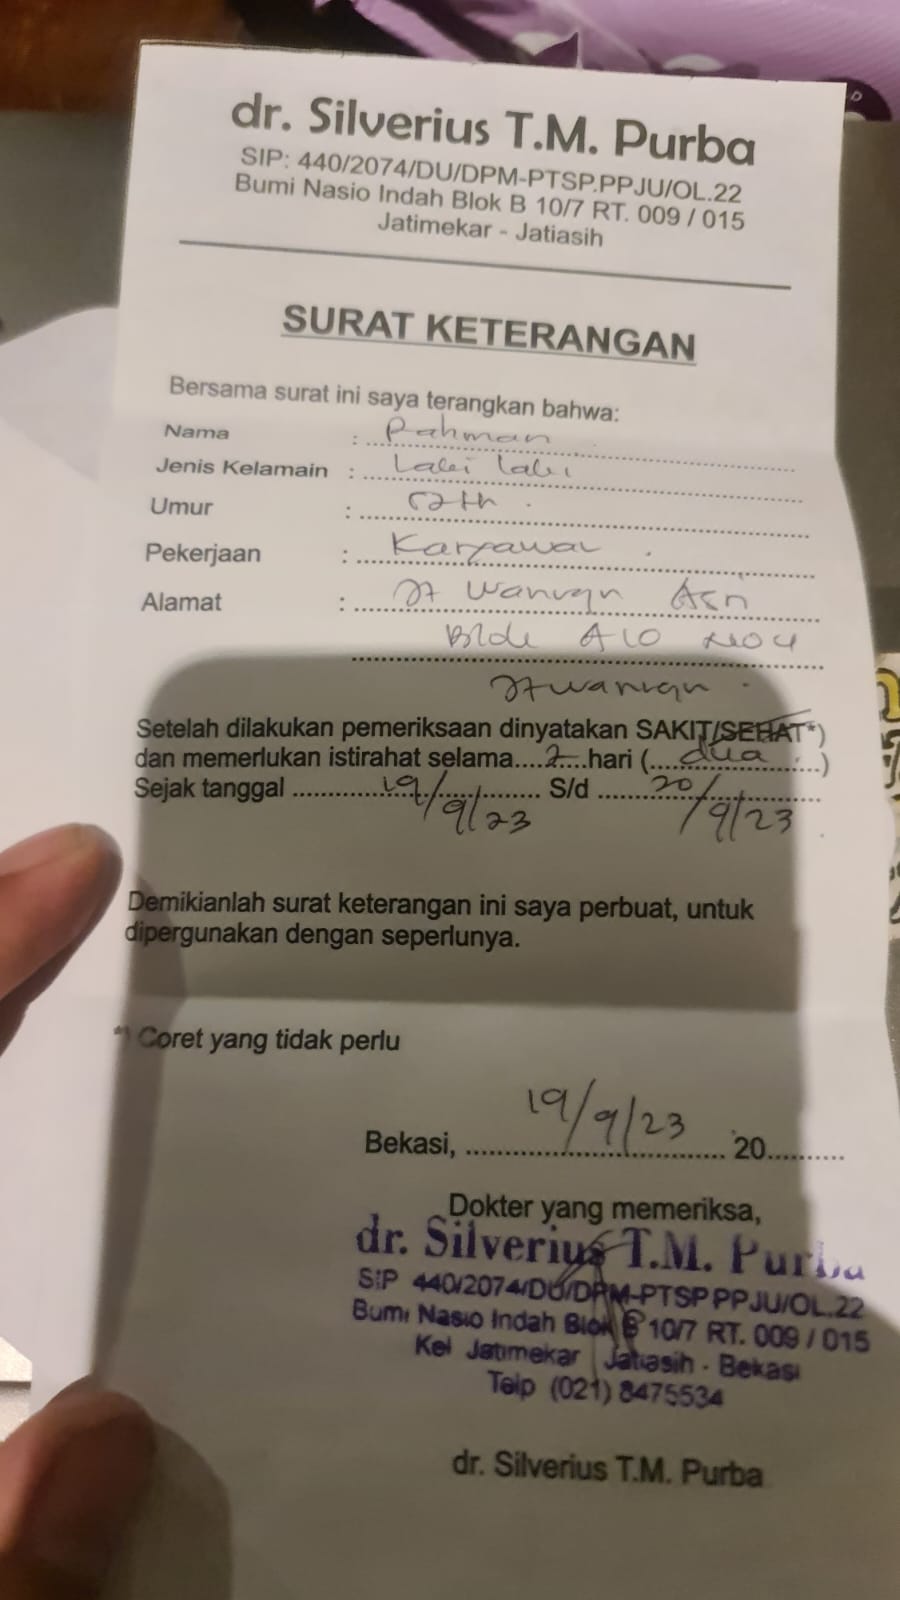 dr. Silverius T.M. Purba
SIP: 440/2074/DU/DPM-PTSP.PPJU/OL.22
Bumi Nasio Indah Blok B 10/7 RT. 009 / 015
Jatimekar - Jatiasih
SURAT KETERANGAN
Bersama surat ini saya terangkan bahwa:
Nama : Rahman
Jenis Kelamain : Laki laki
Umur : 52 th
Pekerjaan : Karyawan
Alamat :
A10 No 4
Setelah dilakukan pemeriksaan dinyatakan SAKIT/SEHAT*)
dan memerlukan istirahat selama....2....hari (....dua....)
Sejak tanggal .... 19/9/23 .... S/d .... 20/9/23
Demikianlah surat keterangan ini saya perbuat, untuk
dipergunakan dengan seperlunya.
*) Coret yang tidak perlu
Bekasi, .... 19/9/23 .... 20..........
Dokter yang memeriksa,
dr. Silverius T.M. Purba
SIP 440/2074/DU/DPM-PTSP PPJU/OL.22
Bumi Nasio Indah Blok B 10/7 RT. 009 / 015
Kel Jatimekar Jatiasih - Bekasi
Telp (021) 8475534
dr. Silverius T.M. Purba